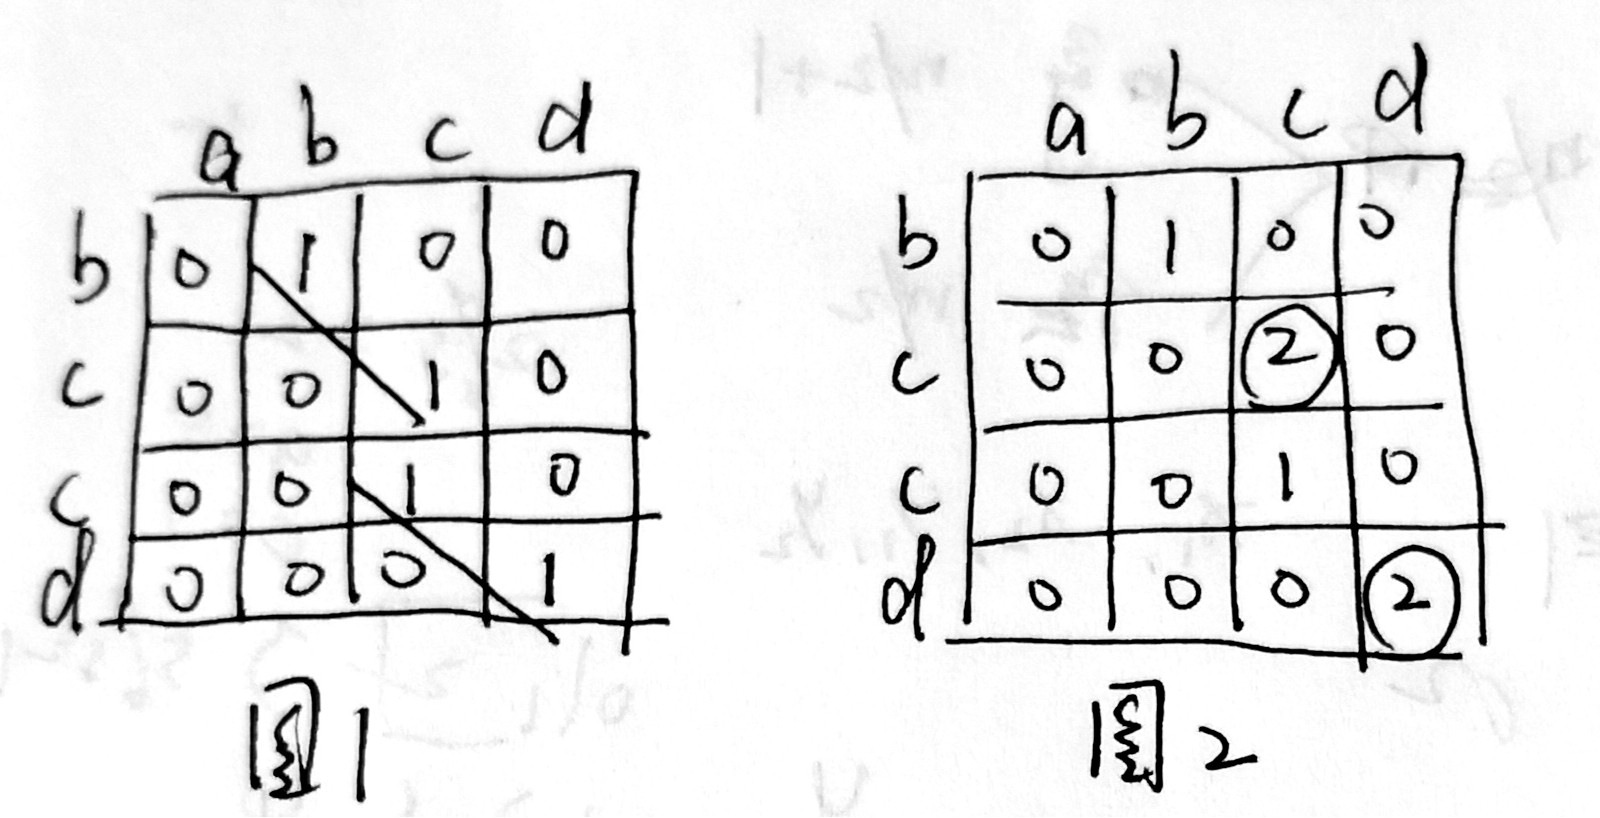 a b c d
b 0 1 0 0
c 0 0 1 0
c 0 0 1 0
d 0 0 0 1
图1
a b c d
b 0 1 0 0
c 0 0 2 0
c 0 0 1 0
d 0 0 0 2
图2